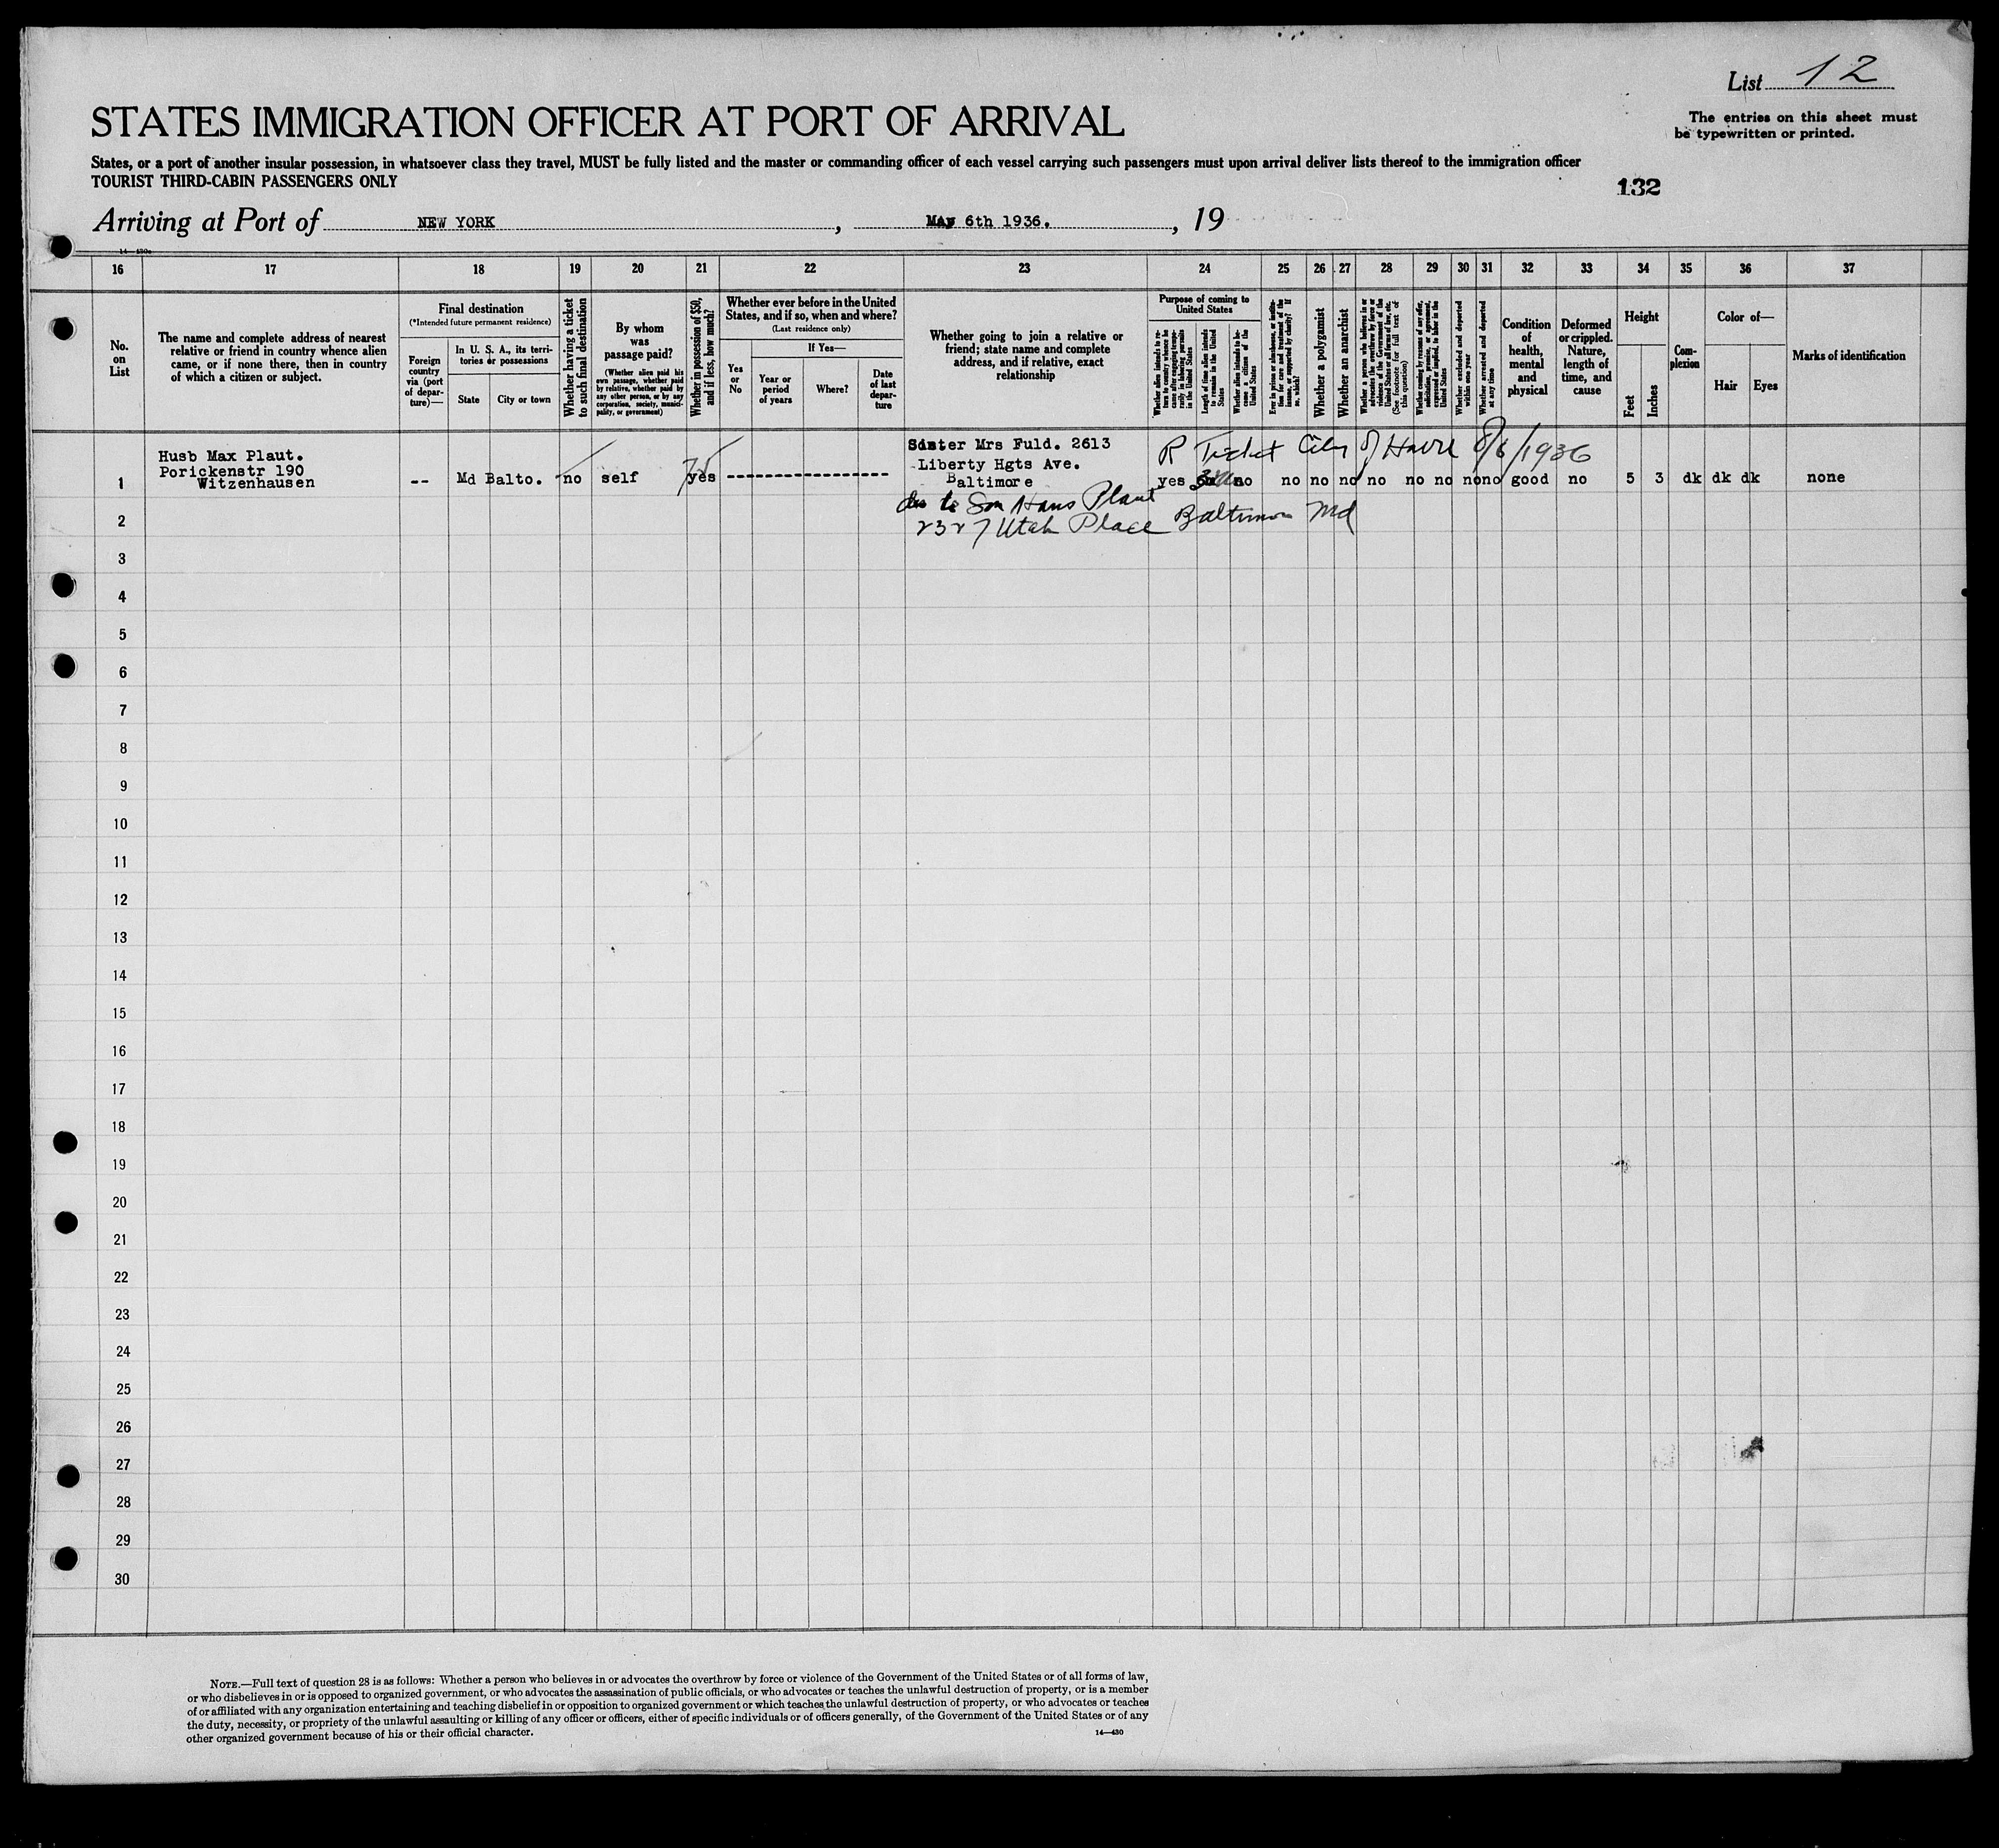 List 12
The entries on this sheet must
be typewritten or printed.
STATES IMMIGRATION OFFICER AT PORT OF ARRIVAL
States, or a port of another insular possession, in whatsoever class they travel, MUST be fully listed and the master or commanding officer of each vessel carrying such passengers must upon arrival deliver lists thereof to the immigration officer
TOURIST THIRD-CABIN PASSENGERS ONLY
132
Arriving at Port of NEW YORK, May 6th 1936., 19
14—430a
16 17 18 19 20 21 22 23 24 25 26 27 28 29 30 31 32 33 34 35 36 37
No.
on
List
The name and complete address of nearest
relative or friend in country whence alien
came, or if none there, then in country
of which a citizen or subject.
Final destination
(*Intended future permanent residence)
Foreign
country
via (port
of depar-
ture)—
In U. S. A., its terri-
tories or possessions
State
City or town
Whether having a ticket
to such final destination
By whom
was
passage paid?
(Whether alien paid his
own passage, whether paid
by relative, whether paid by
any other person, or by any
corporation, society, munici-
pality, or government)
Whether in possession of $50,
and if less, how much?
Whether ever before in the United
States, and if so, when and where?
(Last residence only)
Yes
or
No
If Yes—
Year or
period
of years
Where?
Date
of last
depar-
ture
Whether going to join a relative or
friend; state name and complete
address, and if relative, exact
relationship
Purpose of coming to
United States
Whether alien intends to re-
turn to country whence he
came after engaging tempo-
rarily in laboring pursuits
in the United States
Length of time alien intends
to remain in the United
States
Whether alien intends to be-
come a citizen of the
United States
Ever in prison or almshouse, or institu-
tion for care and treatment of the
insane, or supported by charity? If
so, which?
Whether a polygamist
Whether an anarchist
Whether a person who believes in or
advocates the overthrow by force or
violence of the Government of the
United States or all forms of law, etc.
(See footnote for full text of
this question)
Whether coming by reason of any offer,
solicitation, promise, or agreement,
expressed or implied, to labor in the
United States
Whether excluded and deported
within one year
Whether arrested and deported
at any time
Condition
of
health,
mental
and
physical
Deformed
or crippled.
Nature,
length of
time, and
cause
Height
Feet
Inches
Com-
plexion
Color of—
Hair
Eyes
Marks of identification
Husb Max Plaut. Sister Mrs Fuld. 2613 R Ticket City of Havre 8/6/1936
Porickenstr 190 Liberty Hgts Ave.
1 Witzenhausen -- Md Balto. no self yes Baltimore yes no no no no no no no no no good no 5 3 dk dk dk none
Son Hans Plaut
2 2327 Utah Place Baltimore Md
3
4
5
6
7
8
9
10
11
12
13
14
15
16
17
18
19
20
21
22
23
24
25
26
27
28
29
30
NOTE.—Full text of question 28 is as follows: Whether a person who believes in or advocates the overthrow by force or violence of the Government of the United States or of all forms of law,
or who disbelieves in or is opposed to organized government, or who advocates the assassination of public officials, or who advocates or teaches the unlawful destruction of property, or is a member
of or affiliated with any organization entertaining and teaching disbelief in or opposition to organized government or which teaches the unlawful destruction of property, or who advocates or teaches
the duty, necessity, or propriety of the unlawful assaulting or killing of any officer or officers, either of specific individuals or of officers generally, of the Government of the United States or of any
other organized government because of his or their official character.
14—430